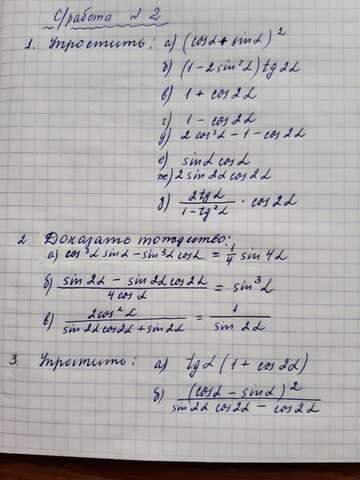 С/работа № 2
1. Упростить: а) (cosα + sinα)²
б) (1 - 2 sin²α) tg 2α
в) 1 + cos 2α
г) 1 - cos 2α
д) 2 cos²α - 1 - cos 2α
е) sinα cosα
ж) 2 sin 2α cos 2α
з) 2tgα / (1 - tg²α) · cos 2α
2. Доказать тождество:
а) cos³α sinα - sin³α cosα = 1/4 sin 4α
б) (sin 2α - sin 2α cos 2α) / (4 cosα) = sin³α
в) 2cos²α / (sin 2α cos 2α + sin 2α) = 1 / sin 2α
3. Упростить: а) tgα (1 + cos 2α)
б) (cosα - sinα)² / (sin 2α cos 2α - cos 2α)